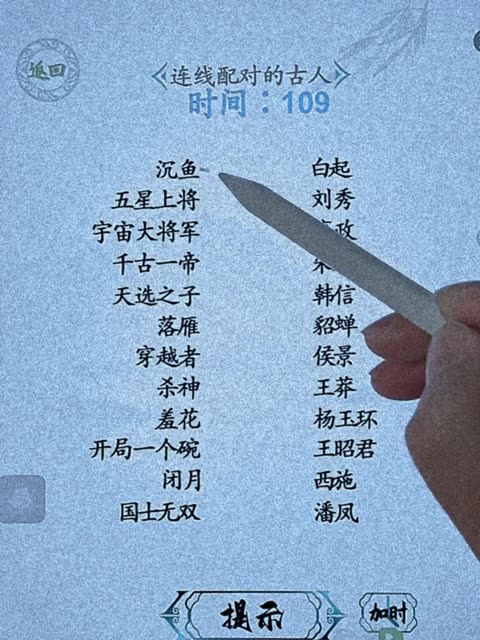 返回
连线配对的古人
时间：109
沉鱼 白起
五星上将 刘秀
宇宙大将军 政
千古一帝 朱
天选之子 韩信
落雁 貂蝉
穿越者 侯景
杀神 王莽
羞花 杨玉环
开局一个碗 王昭君
闭月 西施
国士无双 潘凤
提示
加时